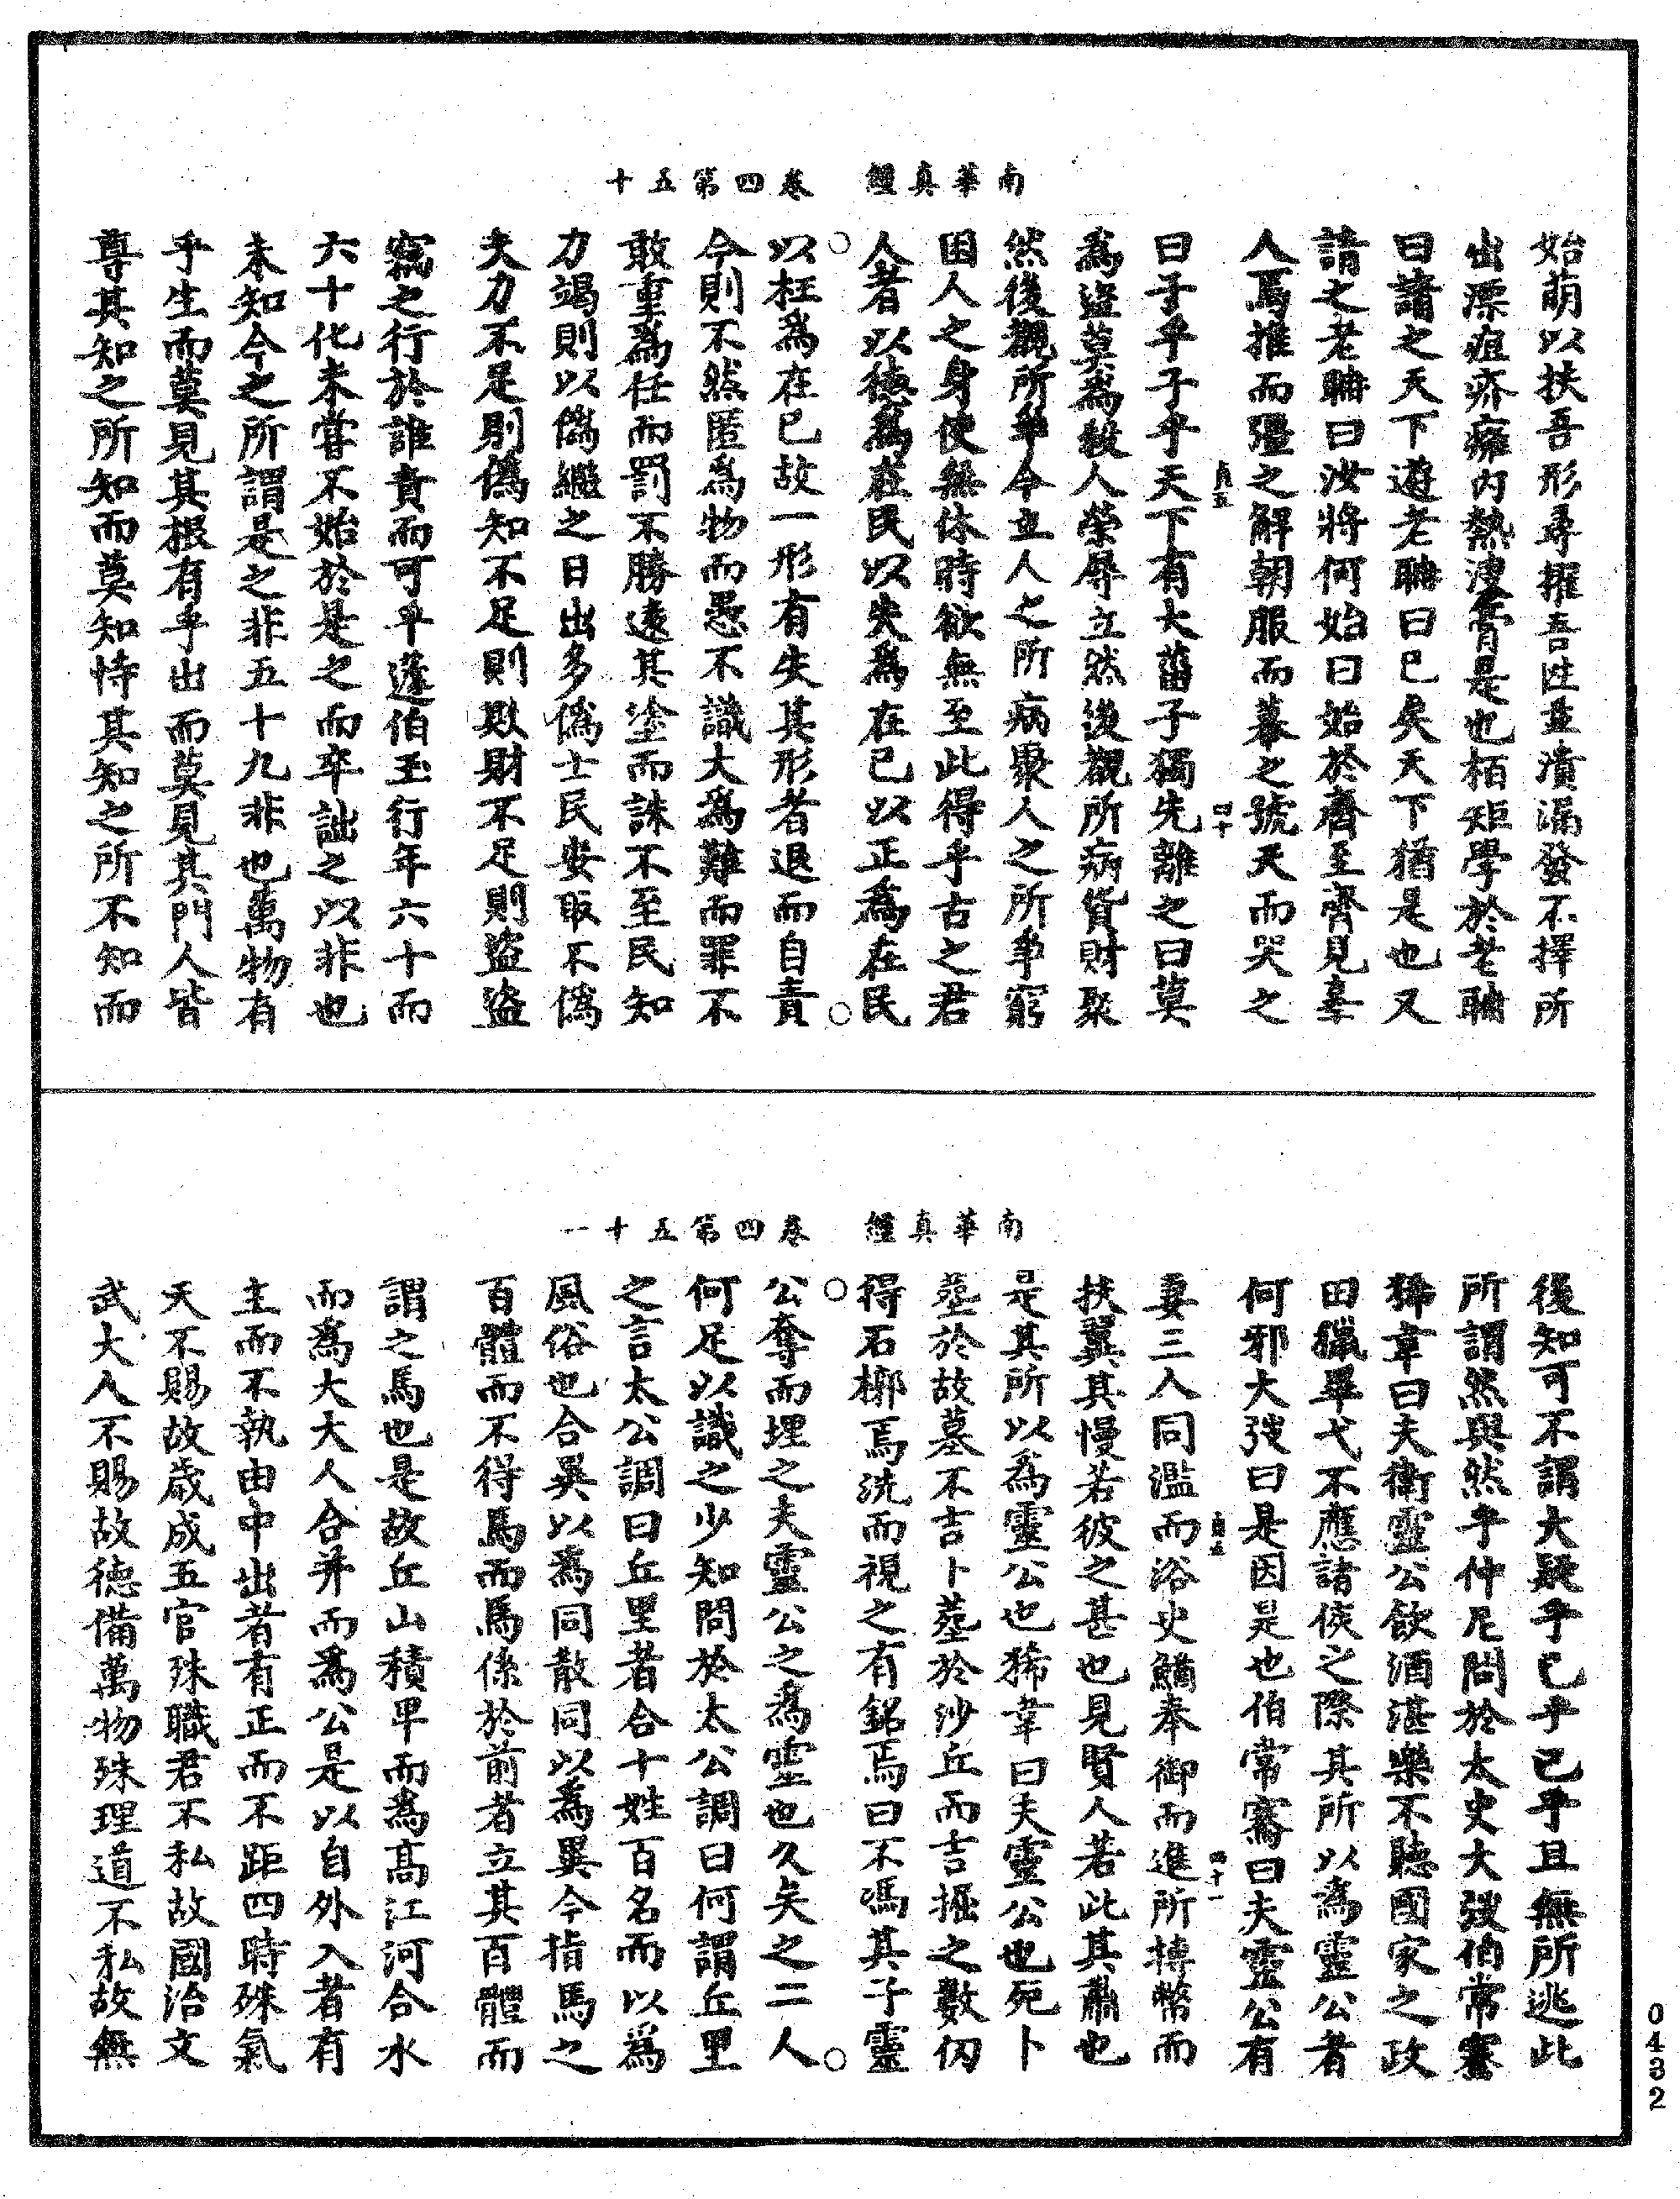 南華真經　卷四第五十
始萌以扶吾形尋擢吾性並潰漏發不擇所
出漂疽疥癰內熱溲膏是也柏矩學於老聃
曰請之天下遊老聃曰已矣天下猶是也又
請之老聃曰汝將何始曰始於齊至齊見辜
人焉推而彊之解朝服而幕之號天而哭之
曰子乎子乎天下有大菑子獨先離之曰莫
為盜莫為殺人榮辱立然後觀所病貨財聚
然後觀所爭今立人之所病聚人之所爭窮
困人之身使無休時欲無至此得乎古之君
人者以德為在民以失為在己以正為在民
以枉為在己故一形有失其形者退而自責
今則不然匿為物而愚不識大為難而罪不
敢重為任而罰不勝遠其塗而誅不至民知
力竭則以偽繼之日出多偽士民安取不偽
夫力不足則偽知不足則欺財不足則盜盜
竊之行於誰責而可乎蘧伯玉行年六十而
六十化未嘗不始於是之而卒詘之以非也
未知今之所謂是之非五十九非也萬物有
乎生而莫見其根有乎出而莫見其門人皆
尊其知之所知而莫知恃其知之所不知而
南華真經　卷四第五十一
後知可不謂大疑乎已乎已乎且無所逃此
所謂然與然乎仲尼問於太史大弢伯常騫
狶韋曰夫衛靈公飲酒湛樂不聽國家之政
田獵畢弋不應諸侯之際其所以為靈公者
何邪大弢曰是因是也伯常騫曰夫靈公有
妻三人同濫而浴史鰌奉御而進所搏幣而
扶翼其慢若彼之甚也見賢人若此其肅也
是其所以為靈公也狶韋曰夫靈公也死卜
葬於故墓不吉卜葬於沙丘而吉掘之數仞
得石槨焉洗而視之有銘焉曰不馮其子靈
公奪而埋之夫靈公之為靈也久矣之二人
何足以識之少知問於太公調曰何謂丘里
之言太公調曰丘里者合十姓百名而以為
風俗也合異以為同散同以為異今指馬之
百體而不得馬而馬係於前者立其百體而
謂之馬也是故丘山積卑而為高江河合水
而為大大人合并而為公是以自外入者有
主而不執由中出者有正而不距四時殊氣
天不賜故歲成五官殊職君不私故國治文
武大人不賜故德備萬物殊理道不私故無
0432